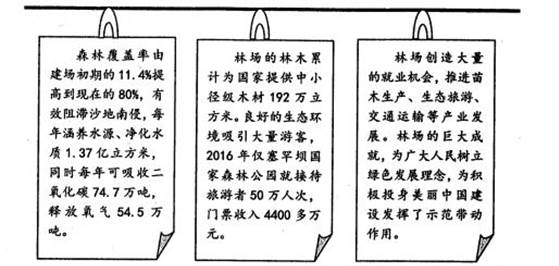 森林覆盖率由
建场初期的11.4%提
高到现在的80%,有
效阻滞沙地南侵,每
年涵养水源、净化水
质1.37亿立方米,
同时每年可吸收二
氧化碳74.7万吨,
释放氧气54.5万
吨。
林场的林木累
计为国家提供中小
径级木材192万立
方米。良好的生态环
境吸引大量游客,
2016年仅塞罕坝国
家森林公园就接待
旅游者50万人次,
门票收入4400多万
元。
林场创造大量
的就业机会,推进苗
木生产、生态旅游、
交通运输等产业发
展。林场的巨大成
就,为广大人民树立
绿色发展理念,为积
极投身美丽中国建
设发挥了示范带动
作用。